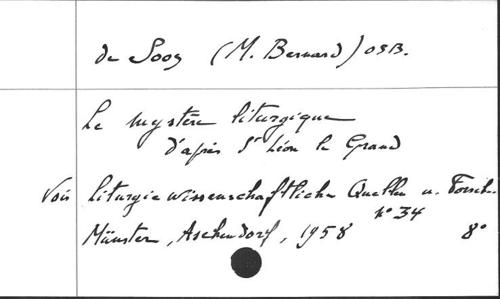 de Soos (M. Bernard) OSB.
Le mystère liturgique
d'après St Léon le Grand
Voir Liturgiewissenschaftliche Quellen u. Forsch.
n° 34
Münster, Aschendorf, 1958 8°